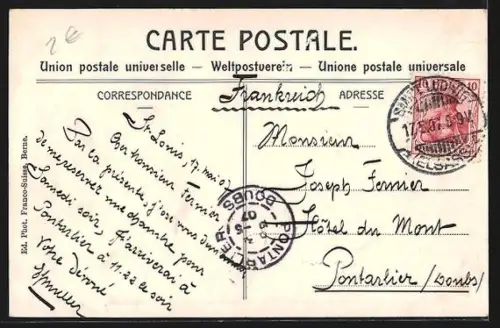 2 €
CARTE POSTALE.
Union postale universelle – Weltpostverein – Unione postale universale
CORRESPONDANCE
Frankreich
ADRESSE
St. Louis, 17 mai 07
Cher Monsieur Fernier
Par la présente, j'ose vous demander
de me réserver une chambre pour
Samedi soir, j'arriverai à
Pontarlier à 11.22 ce soir
Votre dévoué
Monsieur
Joseph Fernier
Hôtel du Mont
Pontarlier (Doubs)
PONTARLIER
DOUBS
10
SANKT LUDWIG
(ELSASS)
Ed. Phot. Franco-Suisse, Berne.